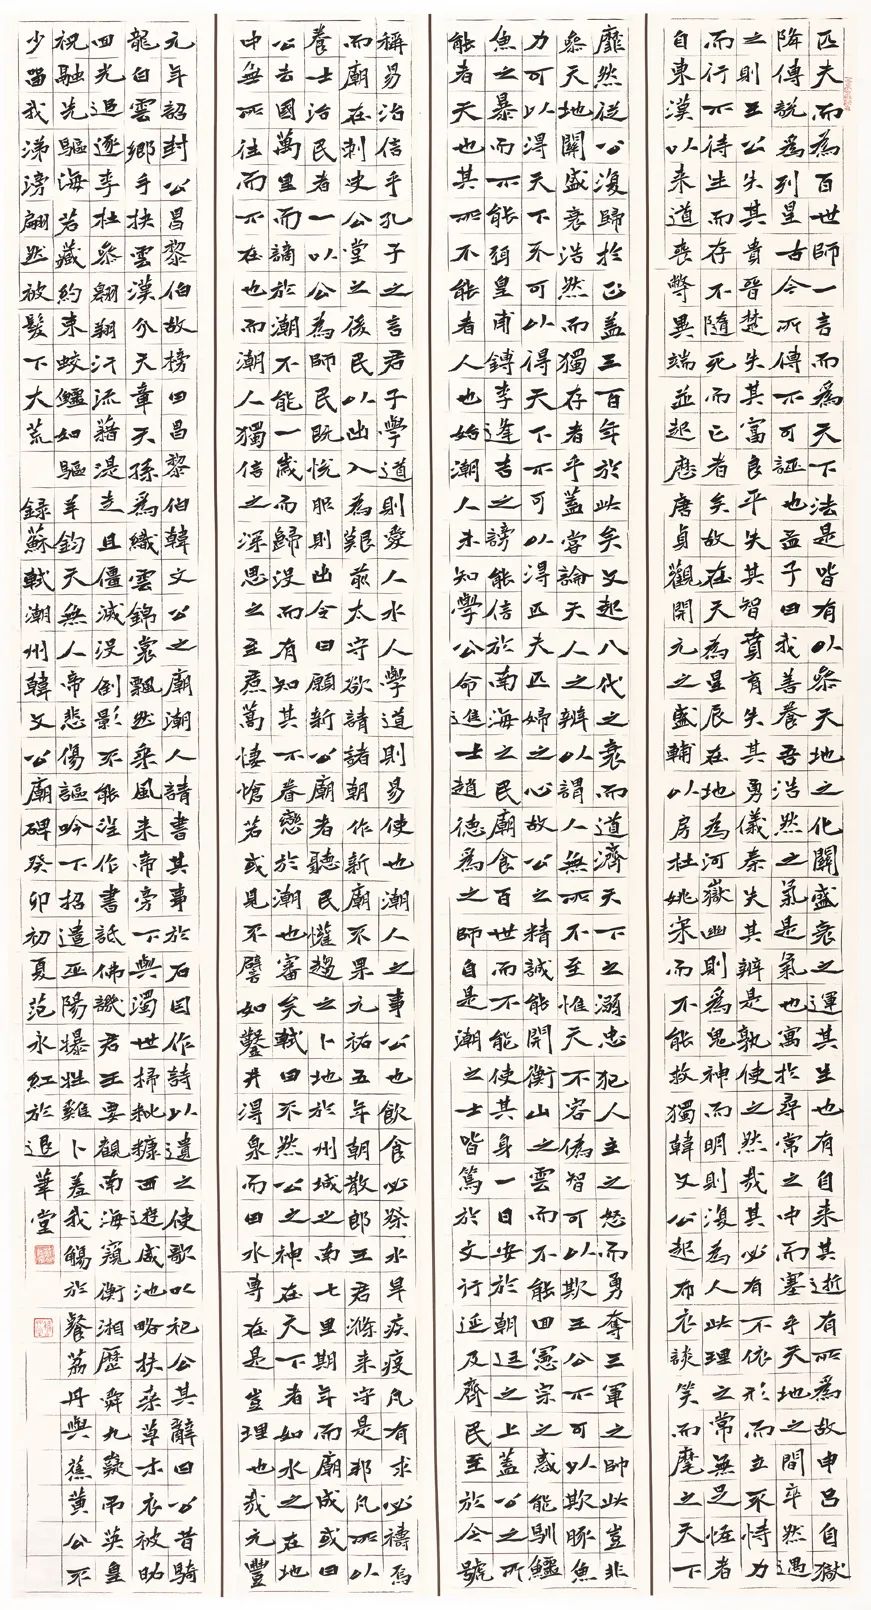 匹夫而為百世師一言而為天下法是皆有以參天地之化關盛衰之運其生也有自來其逝有所為故申呂自嶽
降傳說為列星古今所傳不可誣也孟子曰我善養吾浩然之氣是氣也寓於尋常之中而塞乎天地之間卒然遇
之則王公失其貴晉楚失其富良平失其智賁育失其勇儀秦失其辨是孰使之然哉其必有不依形而立不恃力
而行不待生而存不隨死而亡者矣故在天為星辰在地為河嶽幽則為鬼神而明則復為人此理之常無足怪者
自東漢以來道喪弊異端並起歷唐貞觀開元之盛輔以房杜姚宋而不能救獨韓文公起布衣談笑而麾之天下
靡然從公復歸於正蓋三百年於此矣文起八代之衰而道濟天下之溺忠犯人主之怒而勇奪三軍之帥此豈非
參天地關盛衰浩然而獨存者乎蓋嘗論天人之辨以謂人無所不至惟天不容偽智可以欺王公不可以欺豚魚
力可以得天下不可以得天下不可以得匹夫匹婦之心故公之精誠能開衡山之雲而不能回憲宗之惑能馴鱷
魚之暴而不能弭皇甫鎛李逢吉之謗能信於南海之民廟食百世而不能使其身一日安於朝廷之上蓋公之所
能者天也其所不能者人也始潮人未知學公命進士趙德為之師自是潮之士皆篤於文行延及齊民至於今號
稱易治信乎孔子之言君子學道則愛人水人學道則易使也潮人之事公也飲食必祭水旱疾疫凡有求必禱焉
而廟在刺史公堂之後民以出入為艱前太守欲請諸朝作新廟不果元祐五年朝散郎王君滌來守是邦凡所以
養士治民者一以公為師民既悅服則出令曰願新公廟者聽民懽趨之卜地於州城之南七里期年而廟成或曰
公去國萬里而謫於潮不能一歲而歸沒而有知其不眷戀於潮也審矣軾曰不然公之神在天下者如水之在地
中無所往而不在也而潮人獨信之深思之至焄蒿悽愴若或見不譬如鑿井得泉而曰水專在是豈理也哉元豐
元年詔封公昌黎伯故榜曰昌黎伯韓文公之廟潮人請書其事於石因作詩以遺之使歌以祀公其辭曰公昔騎
龍白雲鄉手抉雲漢分天章天孫為織雲錦裳飄然乘風來帝旁下與濁世掃粃糠西遊咸池略扶桑草木衣被昭
回光追逐李杜參翱翔汗流籍湜走且僵滅沒倒影不能望作書詆佛譏君王要觀南海窺衡湘歷舜九嶷弔英皇
祝融先驅海若藏約束蛟鱷如驅羊鈞天無人帝悲傷謳吟下招遣巫陽犦牲雞卜羞我觴於餐荔丹與蕉黃公不
少留我涕滂翩然被髮下大荒 錄蘇軾潮州韓文公廟碑癸卯初夏范永紅於退筆堂